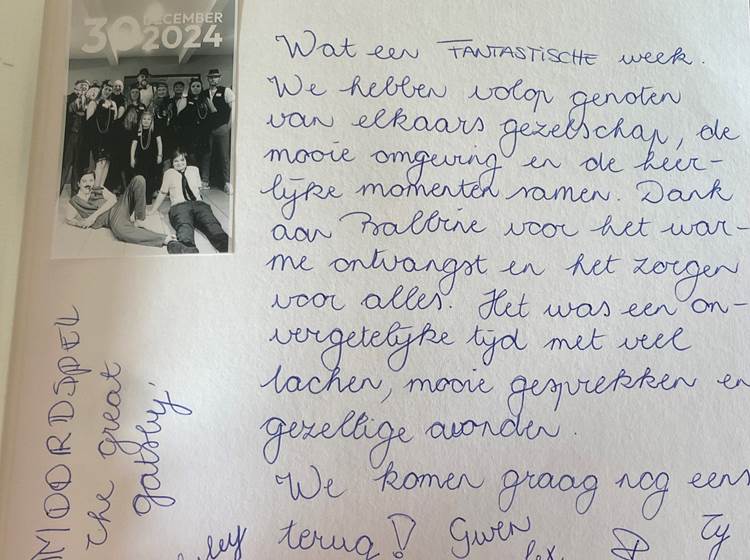 30 DECEMBER
2024
Wat een FANTASTISCHE week.
We hebben volop genoten
van elkaars gezelschap, de
mooie omgeving en de heer-
lijke momenten samen. Dank
aan Balbine voor het war-
me ontvangst en het zorgen
voor alles. Het was een on-
vergetelijke tijd met veel
lachen, mooie gesprekken en
gezellige avonden.
We komen graag nog eens
terug! Gwen
Ty
MOORDSPEL
the great
gatsby.